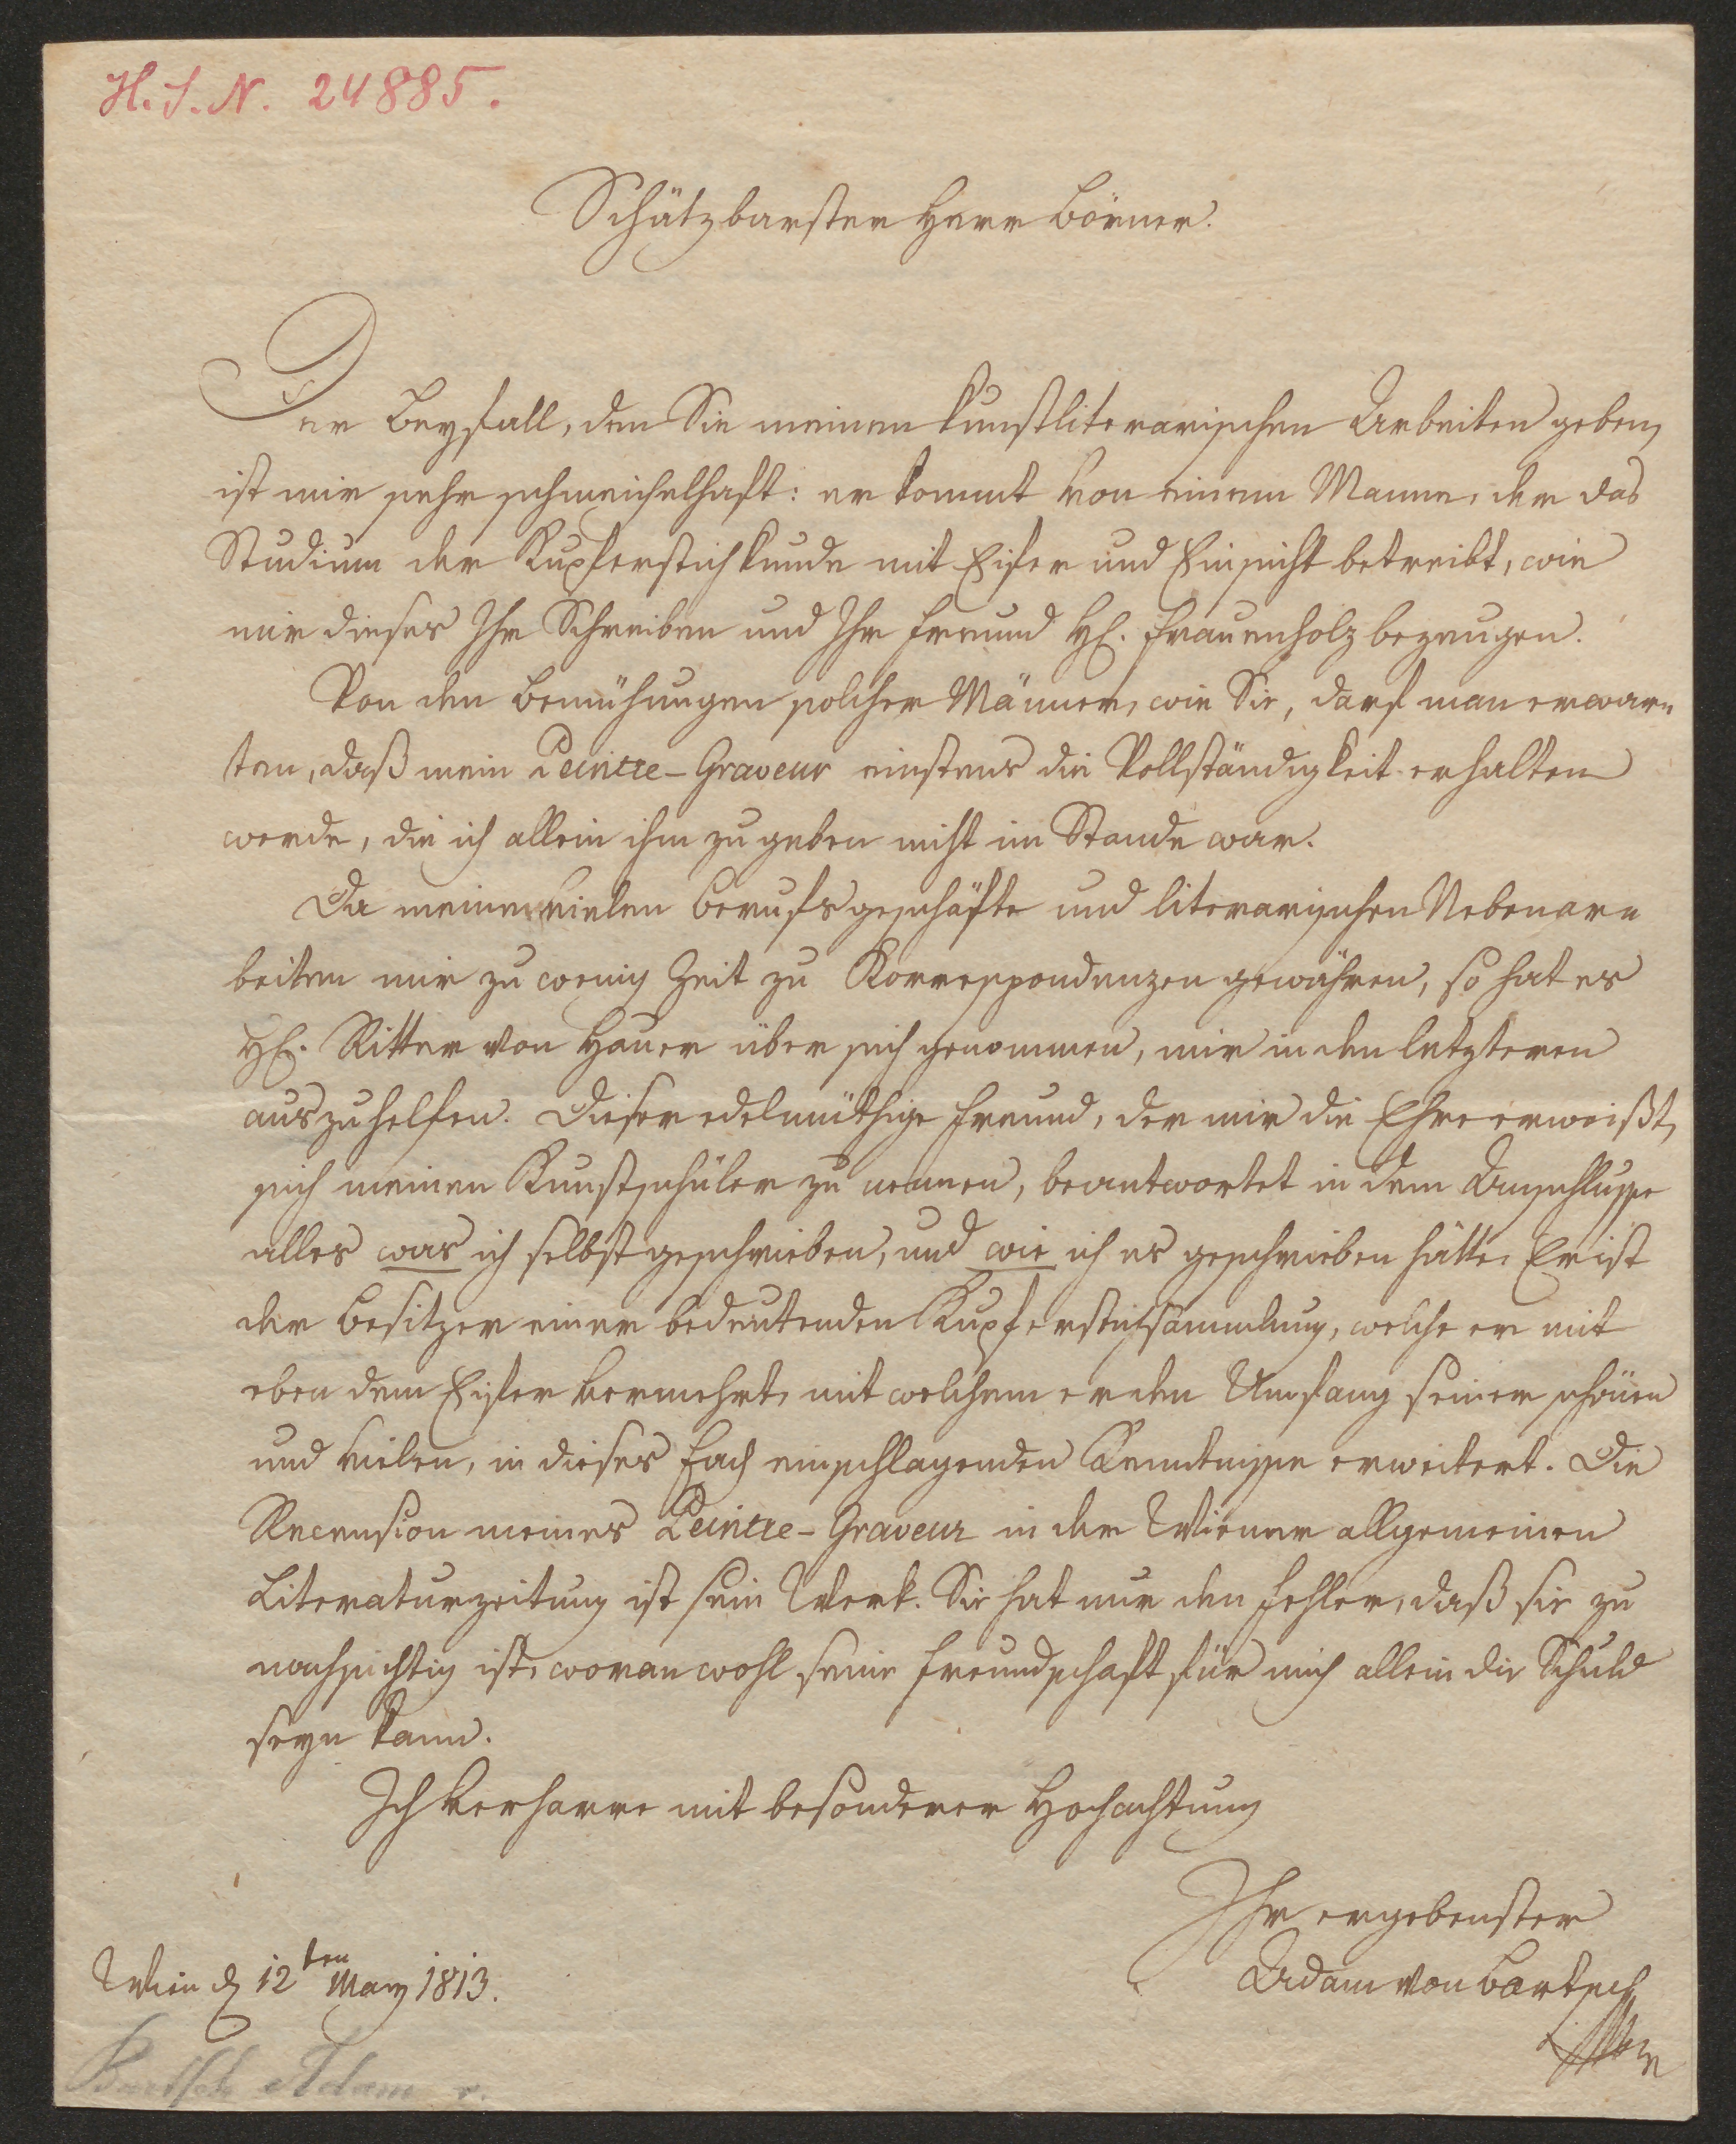 H. I. N. 24885.
Schätzbarster Herr Börner.
Der Beyfall, den Sie meinen kunstliterarischen Arbeiten geben,
ist mir sehr schmeichelhaft: er kommt von einem Manne, der das
Studium der Kupferstichkunde mit Eifer und Einsicht betreibt, wie
mir dieses Ihr Schreiben und Ihr Freund H. Frauenholz bezeugen.
Von den Bemühungen solcher Männer, wie Sie, darf man erwar-
ten, daß mein Peintre-Graveur einstens die Vollständigkeit erhalten
werde, die ich allein ihm zu geben nicht im Stande war.
Da meine vielen Berufsgeschäfte und literarischen Nebenar-
beiten mir zu wenig Zeit zu Korrespondenzen gewähren, so hat es
H. Ritter von Hauer über sich genommen, mir in den letzteren
auszuhelfen. Dieser edelmüthige Freund, der mir die Ehre erweißt,
sich meinen Kunstschüler zu nennen, beantwortet in dem Anschlusse
alles was ich selbst geschrieben, und wie ich es geschrieben hätte. Er ist
der Besitzer einer bedeutenden Kupferstichsammlung, welche er mit
eben dem Eifer vermehrt, mit welchem er den Umfang seiner schönen
und vielen, in dieses Fach einschlagenden Kenntnisse erweitert. Die
Recension meines Peintre-Graveur in der Wiener allgemeinen
Literaturzeitung ist sein Werk. Sie hat nur den Fehler, daß sie zu
nachsichtig ist, woran wohl seine Freundschaft für mich allein die Schuld
seyn kann.
Ich verharre mit besonderer Hochachtung
Ihr ergebenster
Adam von Bartsch
Wien d 12ten März 1813.
Bartsch Adam v.